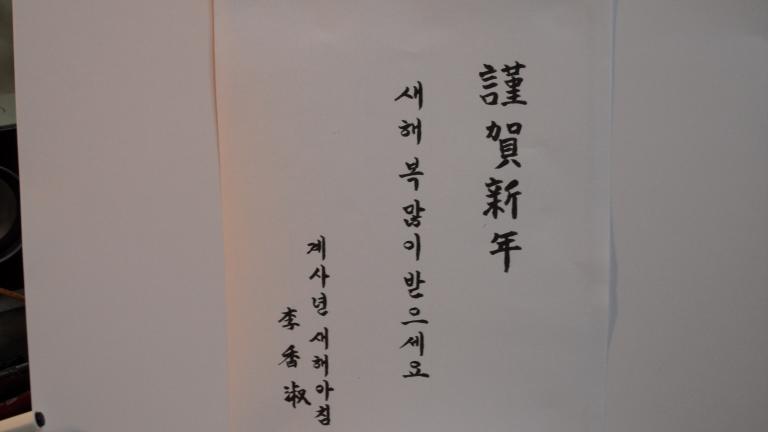 謹賀新年
새해 복 많이 받으세요
계사년 새해아침
李香淑